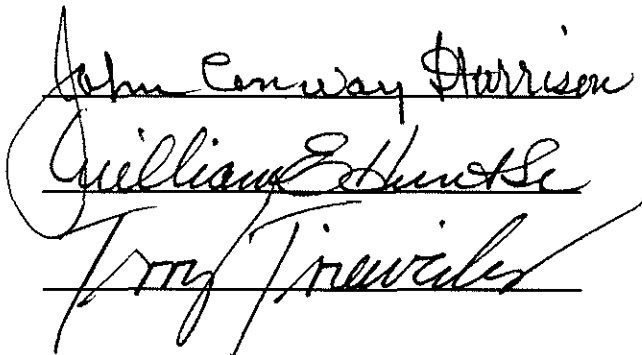 John Conway Harrison
William E. Hunt Sr
Terry Trieweiler